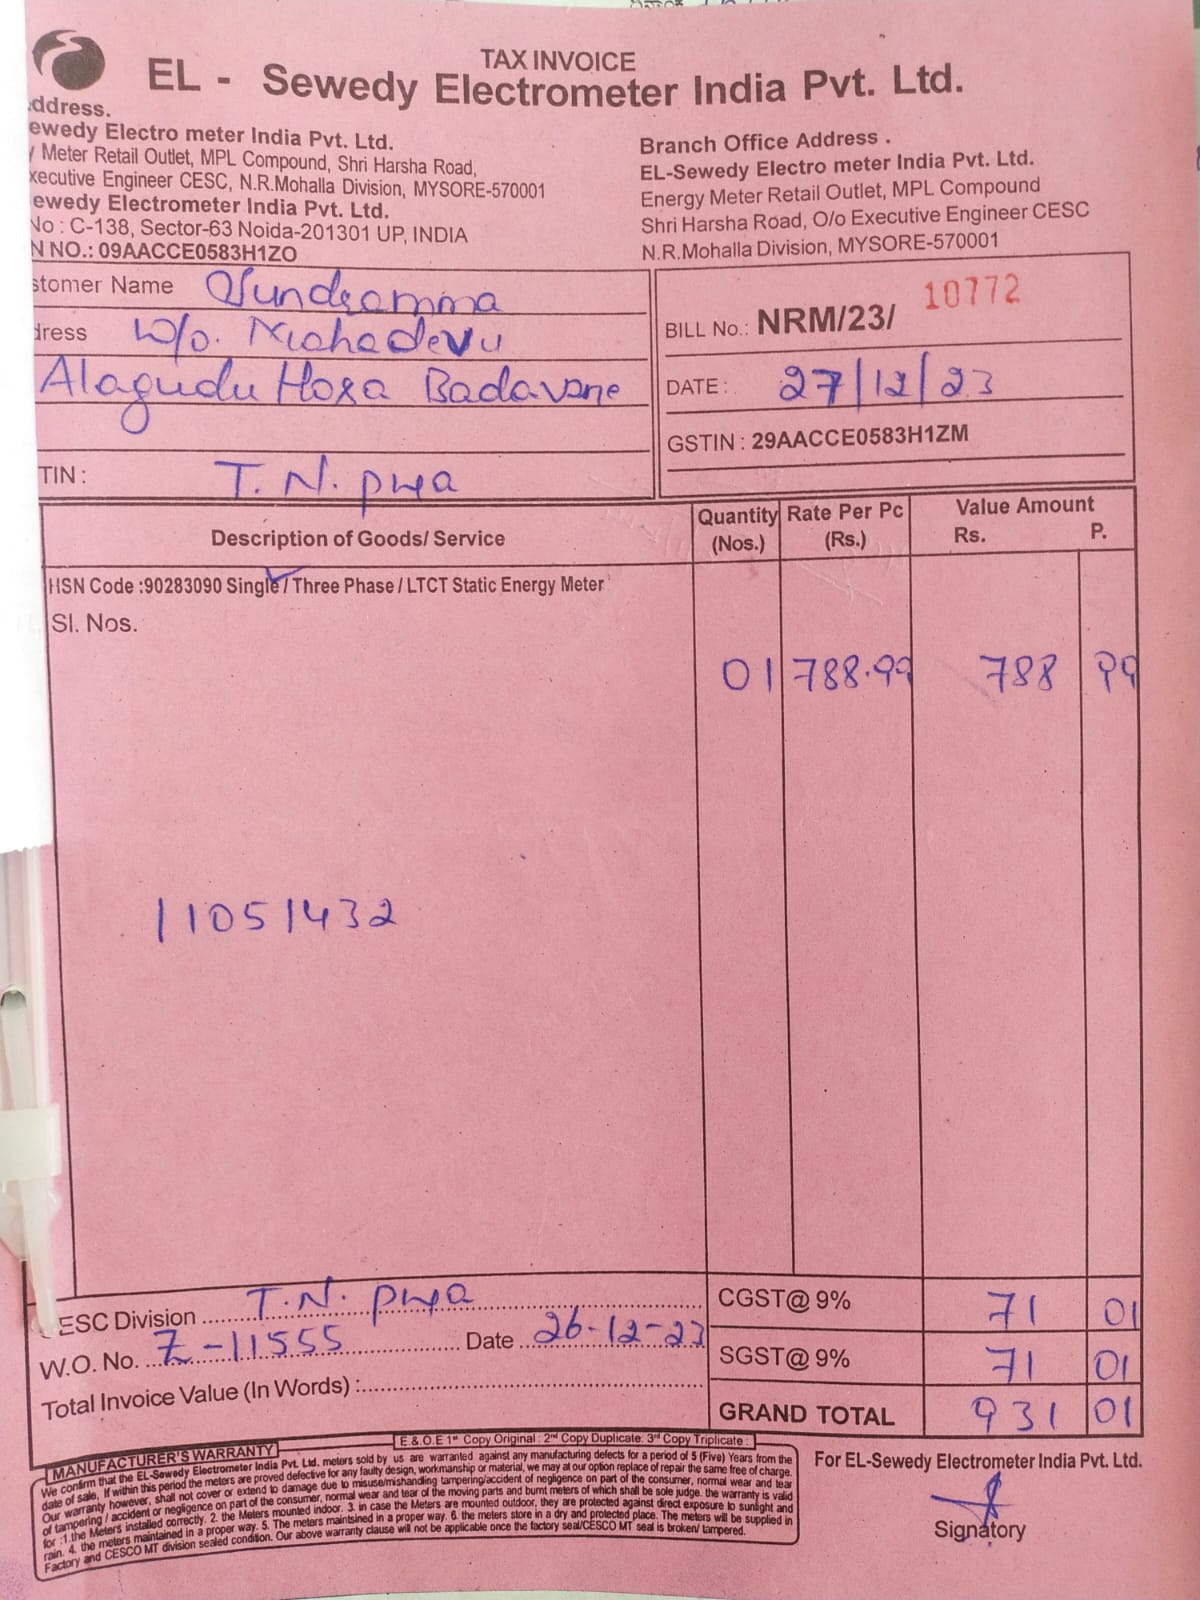 TAX INVOICE
EL - Sewedy Electrometer India Pvt. Ltd.
ddress.
ewedy Electro meter India Pvt. Ltd.
y Meter Retail Outlet, MPL Compound, Shri Harsha Road,
xecutive Engineer CESC, N.R.Mohalla Division, MYSORE-570001
ewedy Electrometer India Pvt. Ltd.
No : C-138, Sector-63 Noida-201301 UP, INDIA
N NO.: 09AACCE0583H1ZO
Branch Office Address .
EL-Sewedy Electro meter India Pvt. Ltd.
Energy Meter Retail Outlet, MPL Compound
Shri Harsha Road, O/o Executive Engineer CESC
N.R.Mohalla Division, MYSORE-570001
stomer Name
dress W/o. Mahadevu
Alagudu Hosa Badavane
TIN : T. N. pura
BILL No.: NRM/23/ 10772
DATE : 27/12/23
GSTIN : 29AACCE0583H1ZM
Description of Goods/ Service Quantity (Nos.) Rate Per Pc (Rs.) Value Amount Rs. P.
HSN Code :90283090 Single / Three Phase / LTCT Static Energy Meter
Sl. Nos.
01 788.99 788 99
11051432
ESC Division T.N. pura
W.O. No. Z-11555 Date 26-12-23
Total Invoice Value (In Words) :
CGST@ 9% 71 01
SGST@ 9% 71 01
GRAND TOTAL 931 01
E & O.E 1st Copy Original : 2nd Copy Duplicate: 3rd Copy Triplicate :
MANUFACTURER'S WARRANTY
We confirm that the EL-Sewedy Electrometer India Pvt. Ltd. meters sold by us are warranted against any manufacturing defects for a period of 5 (Five) Years from the
date of sale. If within this period the meters are proved defective for any faulty design, workmanship or material, we may at our option replace of repair the same free of charge.
Our warranty however, shall not cover or extend to damage due to misuse/mishandling tampering/accident of negligence on part of the consumer, normal wear and tear
of tampering / accident or negligence on part of the consumer, normal wear and tear of the moving parts and burnt meters of which shall be sole judge. the warranty is valid
for :1.the Meters installed correctly. 2. the Meters mounted indoor. 3. in case the Meters are mounted outdoor, they are protected against direct exposure to sunlight and
rain. 4. the meters maintained in a proper way. 5. The meters maintsined in a proper way. 6. the meters store in a dry and protected place. The meters will be supplied in
Factory and CESCO MT division sealed condition. Our above warranty clause will not be applicable once the factory seal/CESCO MT seal is broken/ tampered.
For EL-Sewedy Electrometer India Pvt. Ltd.
Signatory